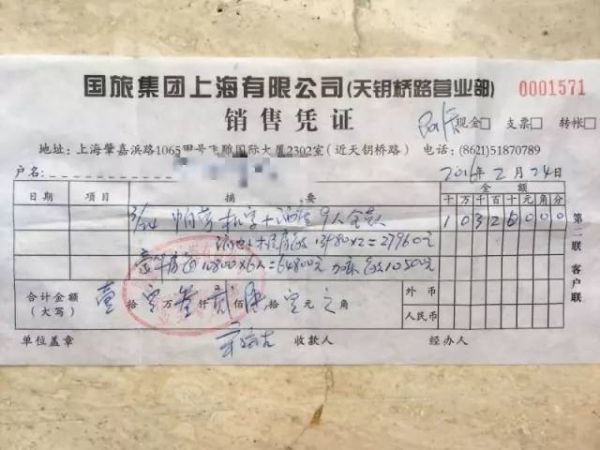 国旅集团上海有限公司(天钥桥路营业部) 0001571
销售凭证 现金□ 支票□ 转帐□
地址：上海肇嘉浜路1065甲号飞雕国际大厦2302室（近天钥桥路） 电话：(8621)51870789
户名： 2016年2月24日
日期 项目 摘要 金额
十万千百十元角分
3/24 帕劳机票+酒店9人全款 10326000
13480×2=27960元
10800×6人=64800元 10500元
合计金额(大写) 壹拾零万叁仟贰佰 拾零元 角
外币
人民币
单位盖章 收款人 经办人
第二联 客户联